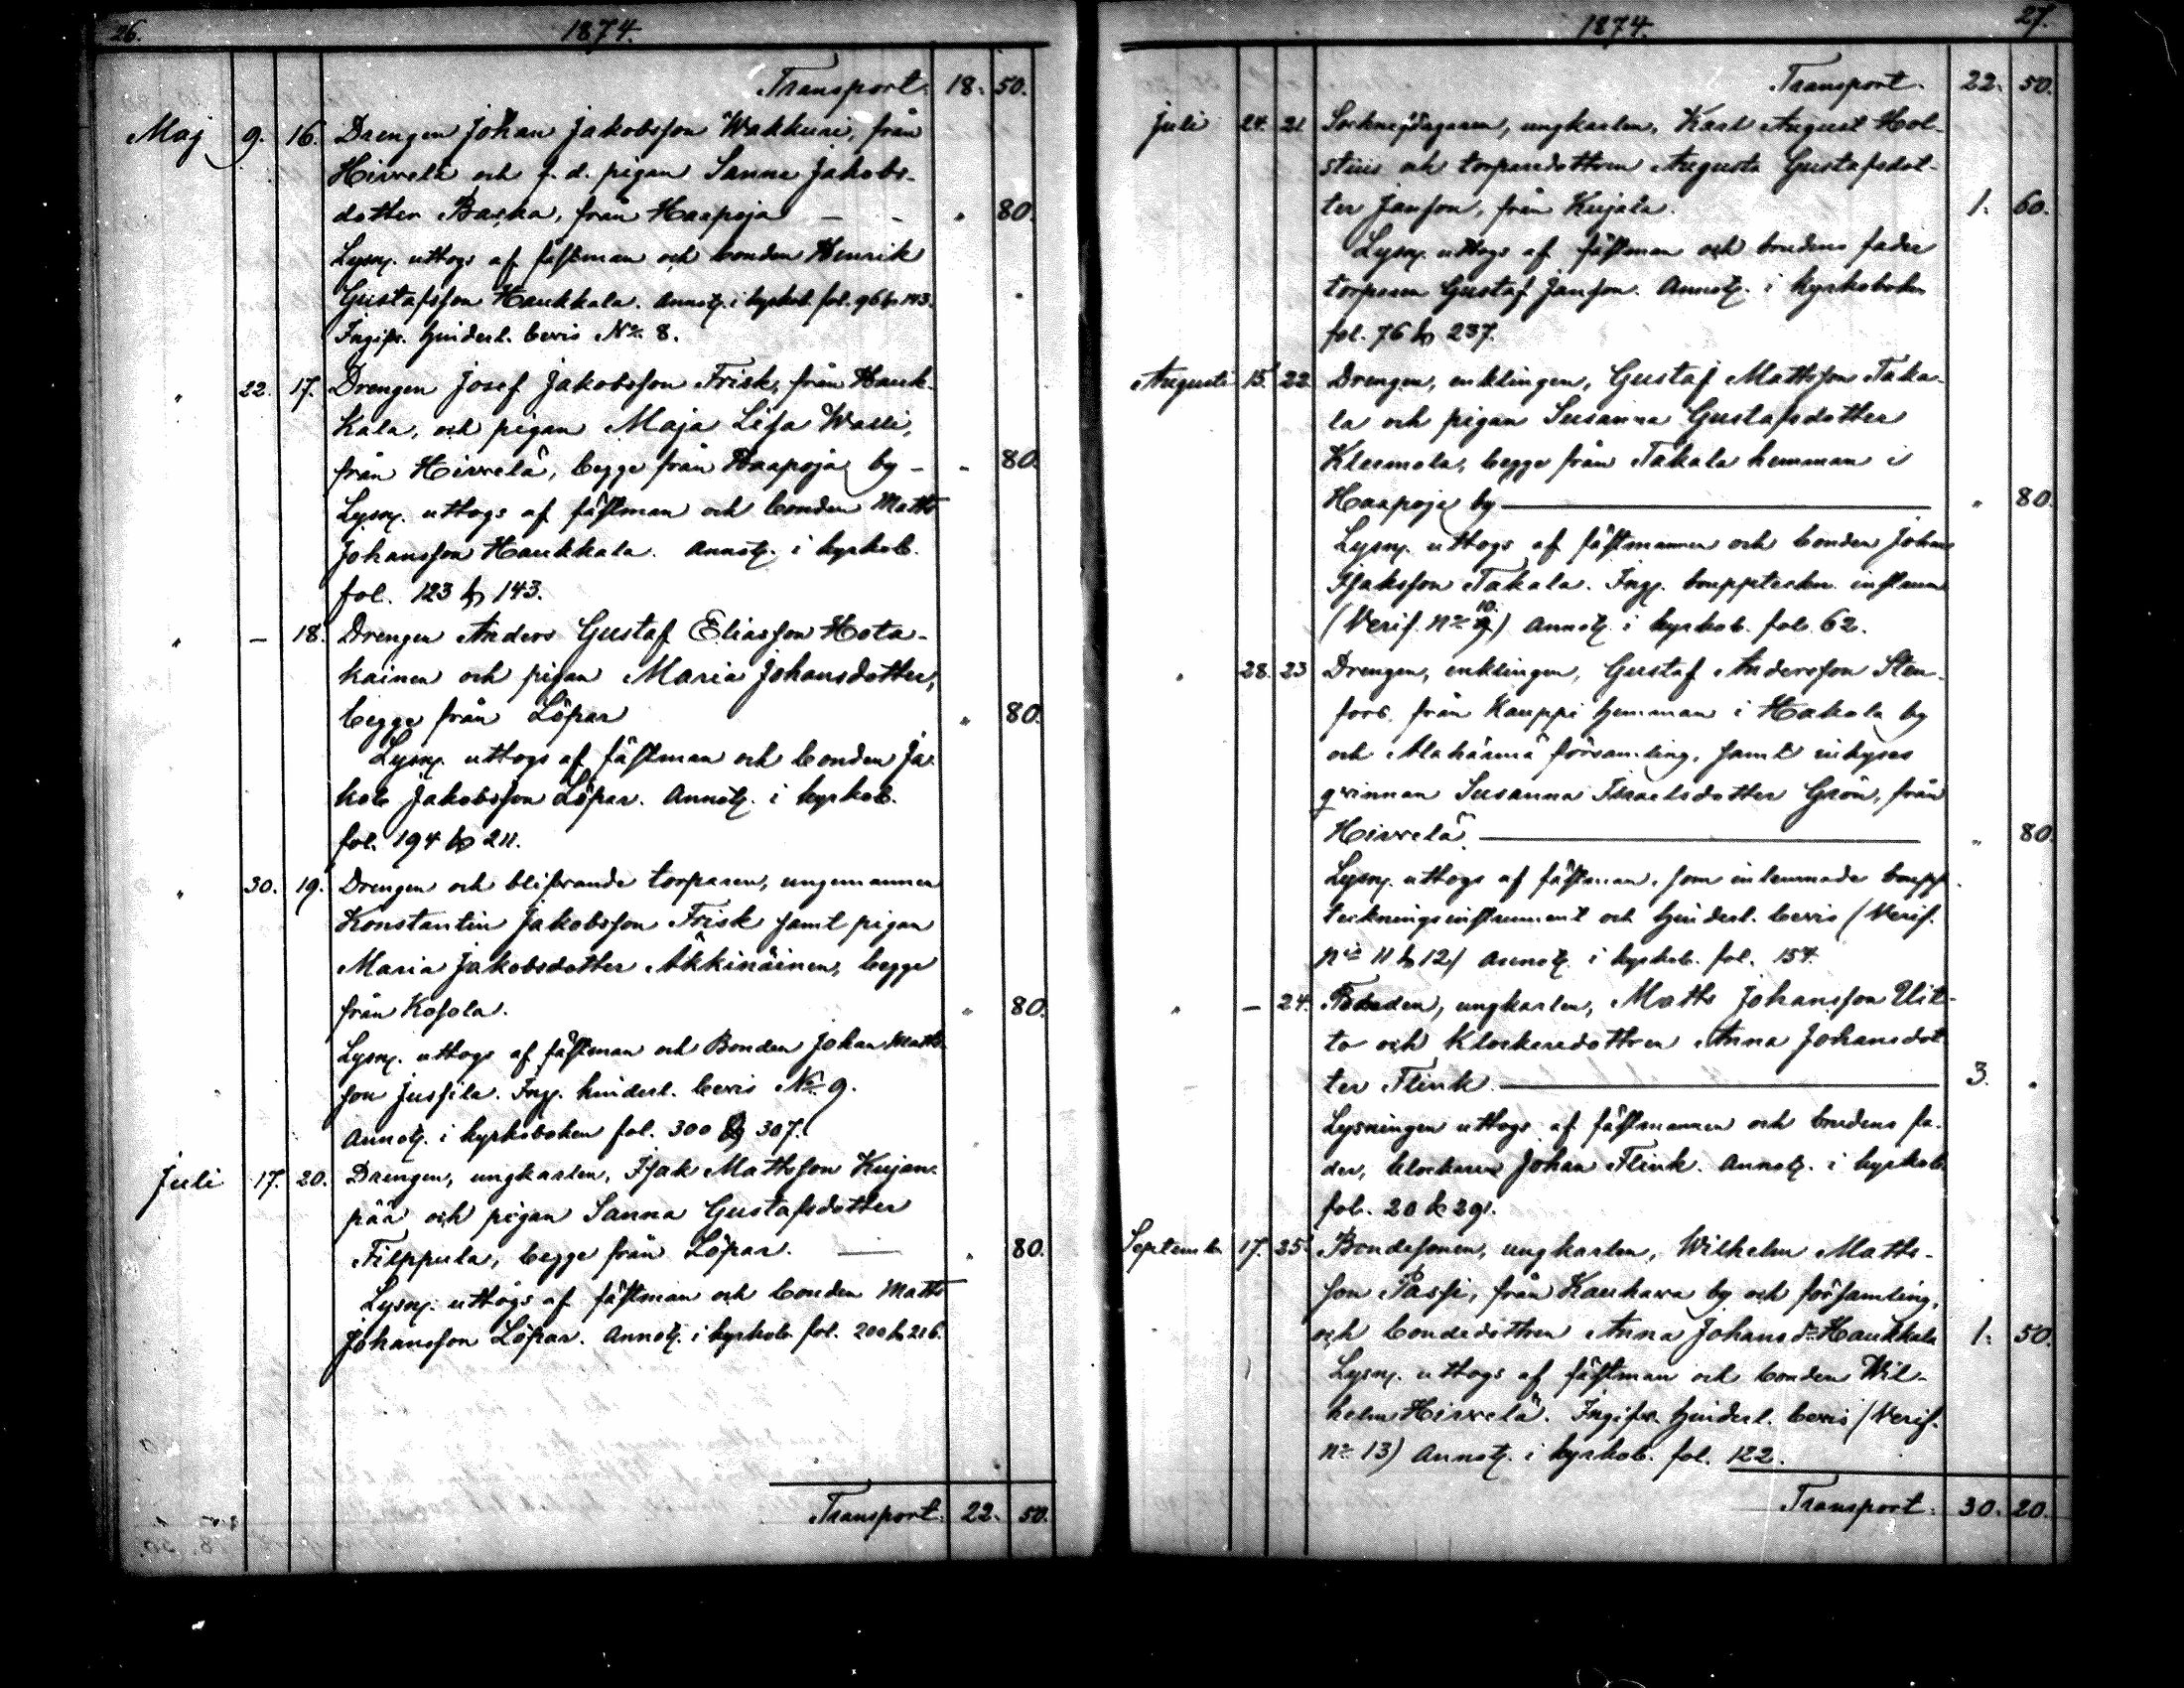 26. 1874.
Transport. 18. 50.
Maj 9. 16. Drengen Johan Jakobsson Wakkuri, från
Hirvelä och f. d. pigan Sanna Jakobs-
dotter Backa, från Haapoja — - " 80.
Lysn. uttogs af fästman och bonden Henrik
Gustafsson Haukkala. Annot. i kyrkob. fol. 96 & 143.
Ingifv. hinderl. bevis No 8.
" 22. 17. Drengen Josef Jakobsson Frisk, från Hauk-
kala, och pigan Maja Lisa Walli,
från Hirvelä, begge från Haapoja by - - 80.
Lysn. uttogs af fästman och bonden Matts
Johansson Haukkala. Annot. i kyrkob.
fol. 123 & 143.
" — 18. Drengen Anders Gustaf Eliasson Hota-
kainen och pigan Maria Johansdotter,
begge från Löpar " 80.
Lysn. uttogs af fästman och bonden Ja-
kob Jakobsson Löpar. Annot. i kyrkob.
fol. 194 & 211.
" 30. 19. Drengen och blifvande torparen, ungemannen
Konstantin Jakobsson Frisk samt pigan
Maria Jakobsdotter Äkkinäinen, begge
från Kosola. " 80.
Lysn. uttogs af fästman och Bonden Johan Matts-
son Jussila. Ing. hinderl. bevis No 9.
Annot. i kyrkoboken fol. 300 & 307.
Juli 17. 20. Drengen, ungkarlen, Isak Mattsson Kujan-
pää och pigan Sanna Gustafsdotter
Filppula, begge från Löpar. — " 80.
Lysn. uttogs af fästman och bonden Matts
Johansson Löpar. Annot. i kyrkob. fol. 200 & 216.
Transport. 22. 50.
1874. 27.
Transport. 22. 50.
Juli 24. 21 Socknegarfvaren, ungkarlen, Karl August Hol-
stius och torparedottren Augusta Gustafsdot-
ter Janson, från Kujala. 1. 60.
Lysn. uttogs af fästman och brudens fader
torparen Gustaf Janson. Annot. i kyrkoboken
fol. 76 & 237.
Augusti 15. 22. Drengen, enklingen, Gustaf Mattsson Taka-
la och pigan Susanna Gustafsdotter
Kleemola, begge från Takala hemman i
Haapoja by — " 80.
Lysn. uttogs af fästmannen och bonden Johan
Isaksson Takala. Ing. bouppteckn. instrum
(Verif. No 10.) Annot. i kyrkob. fol. 62.
" 28. 23 Drengen, enklingen, Gustaf Andersson Sten-
fors, från Kauppi hemman i Hakola by
och Alahärmä församling, samt inhyses
qvinnan Susanna Israelsdotter Grön, från
Hirvelä. — " 80.
Lysn. uttogs af fästman, som inlemnade boupp-
teckningsinstrument och hinderl. bevis (Verif.
No 11 & 12) Annot. i kyrkob. fol. 154.
" — 24. Bonden, ungkarlen, Matts Johansson Uit-
to och Klockaredottren Anna Johansdot-
ter Flink. — 3. "
Lysningen uttogs af fästmannen och brudens fa-
der, klockaren Johan Flink. Annot. i kyrkob.
fol. 20 & 291.
September 17. 25. Bondesonen, ungkarlen, Wilhelm Matts-
son Passi, från Kauhava by och församling,
och bondedottren Anna Johansdr Haukkala 1. 50.
Lysn. uttogs af fästman och bonden Wil-
helm Hirvelä. Ingifv. hinderl. bevis (Verif.
No 13) Annot. i kyrkob. fol. 122.
Transport. 30. 20.